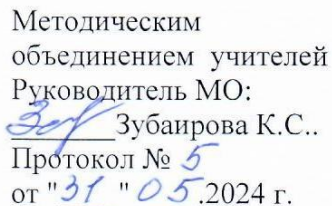 Методическим
объединением учителей
Руководитель МО:
______Зубаирова К.С..
Протокол № 5
от "31 " 05.2024 г.